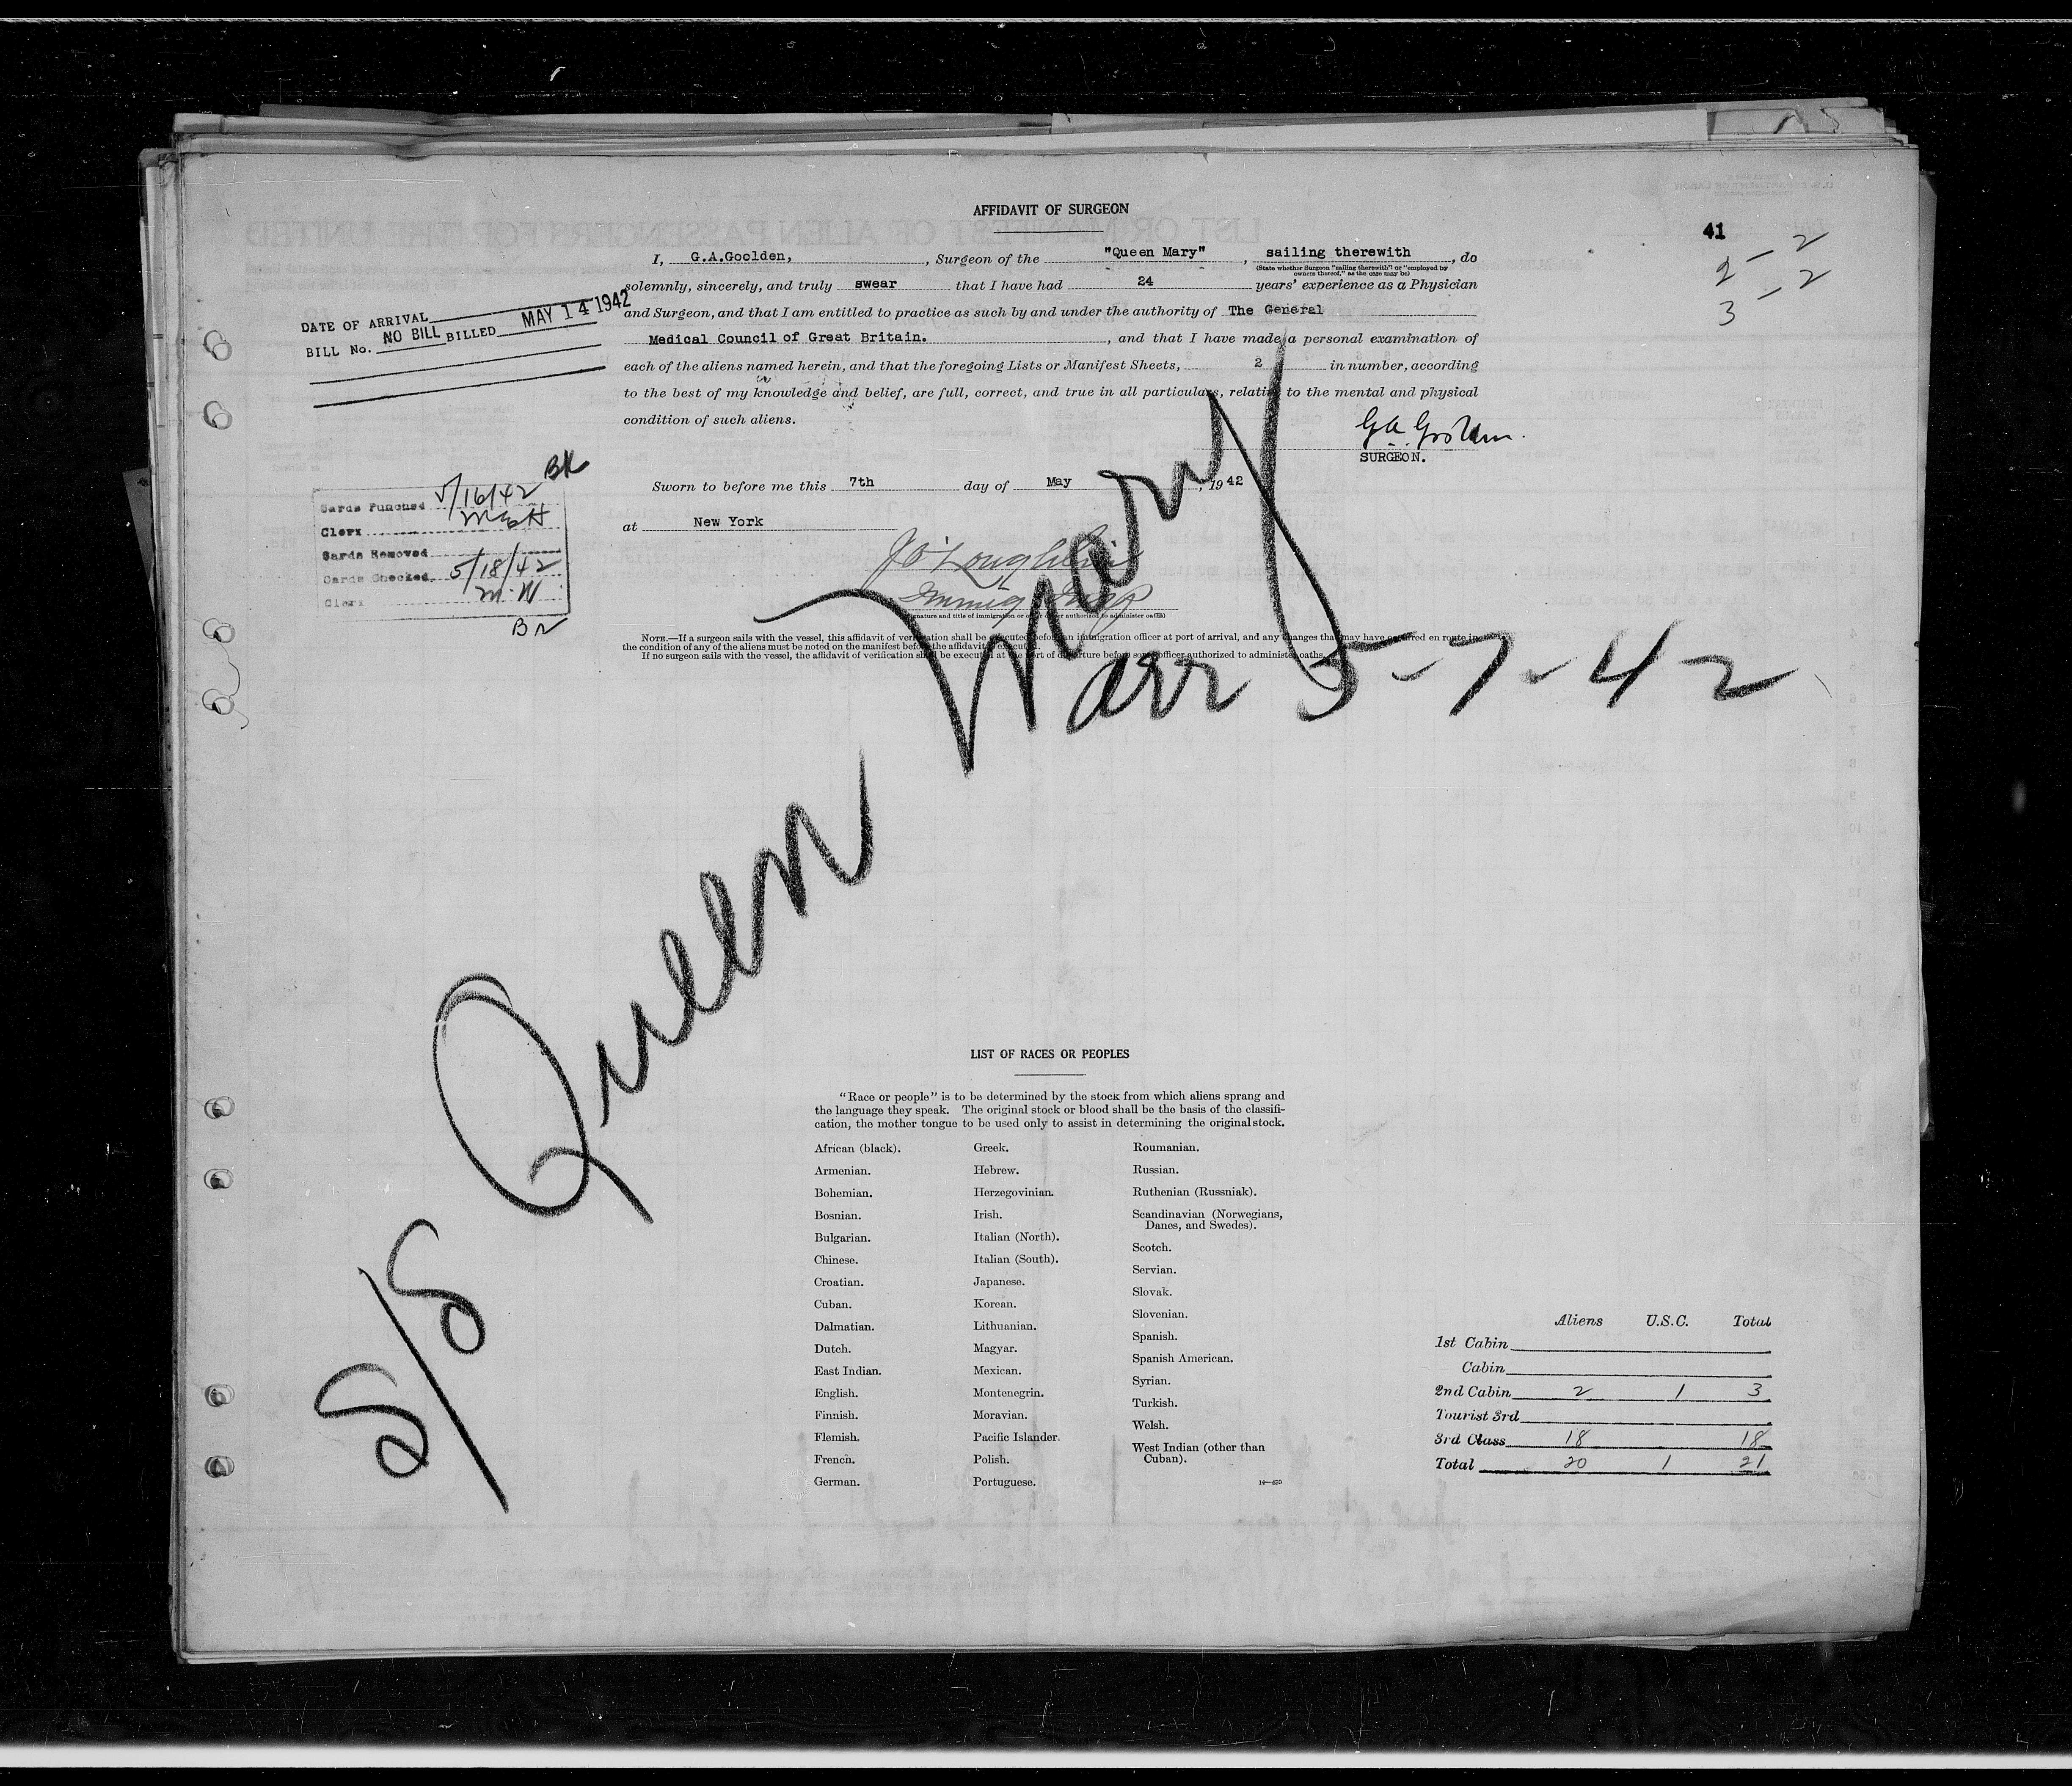 AFFIDAVIT OF SURGEON
41
2 - 2
3 - 2
I, G.A.Goolden, , Surgeon of the "Queen Mary" , sailing therewith , do
(State whether Surgeon "sailing therewith" or "employed by
owners thereof," as the case may be)
solemnly, sincerely, and truly swear that I have had 24 years' experience as a Physician
and Surgeon, and that I am entitled to practice as such by and under the authority of The General
Medical Council of Great Britain. , and that I have made a personal examination of
each of the aliens named herein, and that the foregoing Lists or Manifest Sheets, 2 in number, according
to the best of my knowledge and belief, are full, correct, and true in all particulars, relating to the mental and physical
condition of such aliens.
SURGEON.
DATE OF ARRIVAL
BILL No. NO BILL BILLED MAY 14 1942
Sworn to before me this 7th day of May , 1942
at New York
J O'Loughlin
Immig Insp
(Signature and title of immigration or other officer authorized to administer oaths)
BK
Cards Punched 5/16/42
Clerk
Cards Removed
Cards Checked 5/18/42
Clerk M.W
BR
NOTE.—If a surgeon sails with the vessel, this affidavit of verification shall be executed before an immigration officer at port of arrival, and any changes that may have occurred en route in
the condition of any of the aliens must be noted on the manifest before the affidavit is executed.
If no surgeon sails with the vessel, the affidavit of verification shall be executed at the port of departure before some officer authorized to administer oaths.
S/S Queen Mary
arr 5-7-42
LIST OF RACES OR PEOPLES
"Race or people" is to be determined by the stock from which aliens sprang and
the language they speak. The original stock or blood shall be the basis of the classifi-
cation, the mother tongue to be used only to assist in determining the original stock.
African (black).
Armenian.
Bohemian.
Bosnian.
Bulgarian.
Chinese.
Croatian.
Cuban.
Dalmatian.
Dutch.
East Indian.
English.
Finnish.
Flemish.
French.
German.
Greek.
Hebrew.
Herzegovinian.
Irish.
Italian (North).
Italian (South).
Japanese.
Korean.
Lithuanian.
Magyar.
Mexican.
Montenegrin.
Moravian.
Pacific Islander.
Polish.
Portuguese.
Roumanian.
Russian.
Ruthenian (Russniak).
Scandinavian (Norwegians,
Danes, and Swedes).
Scotch.
Servian.
Slovak.
Slovenian.
Spanish.
Spanish American.
Syrian.
Turkish.
Welsh.
West Indian (other than
Cuban).
Aliens U.S.C. Total
1st Cabin
Cabin
2nd Cabin 2 1 3
Tourist 3rd
3rd Class 18 18
Total 20 1 21